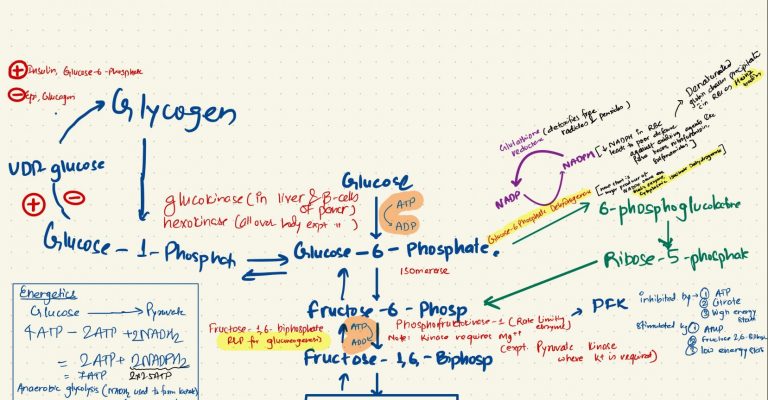 ⊕ Insulin, Glucose-6-Phosphate
⊖ Epi, Glucagon
Glycogen
UDP glucose
⊕ ⊖
Glucose-1-Phosphate
glucokinase (in liver & B-cells
of pancr)
hexokinase (all over body expt ")
Glucose
ATP
ADP
Glucose-6-Phosphate.
Isomerase
Glutathione (detoxifies free
reductase radicals & peroxides)
NADP
NADPH
[↓ NADPH in RBC
leads to poor defense
against oxidizing agents like
fava beans, nitrofurantoin,
Denatured
globin chains precipitate
in RBC as Heinz
bodies
Glucose-6-Phosphate Dehydrogenase
6-phosphogluco
Ribose-5-phosphate
Fructose-6-Phosp
Fructose-1,6-biphosphate
RLP for gluconeogenesis
ATP
ADP
Phosphofructokinase-1 (Rate limiting
enzyme)
Note: Kinase requires Mg²⁺
(expt. Pyruvate Kinase
where K+ is required)
PFK
inhibited by → ① ATP
② Citrate
③ High energy
state
stimulated by ① AMP
② Fructose 2,6-Bipho
③ low energy state
Fructose-1,6-Biphosp
Energetics
Glucose → Pyruvate
4ATP - 2ATP + 2NADH2
= 2ATP + 2NADPH2
= 7ATP 2x2.5ATP
Anaerobic glycolysis (NADH2 used to form lactate)